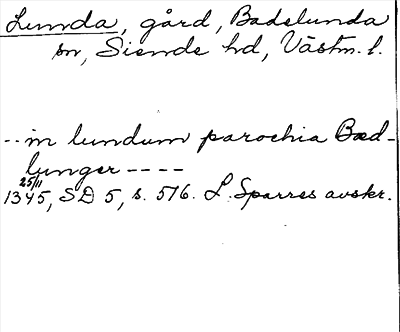 Lunda, gård, Badelunda
sn, Siende hd, Västm. l.
-- in lundum parochia Bad-
lunger ----
25/11
1345, SD 5, s. 516. L. Sparres avskr.